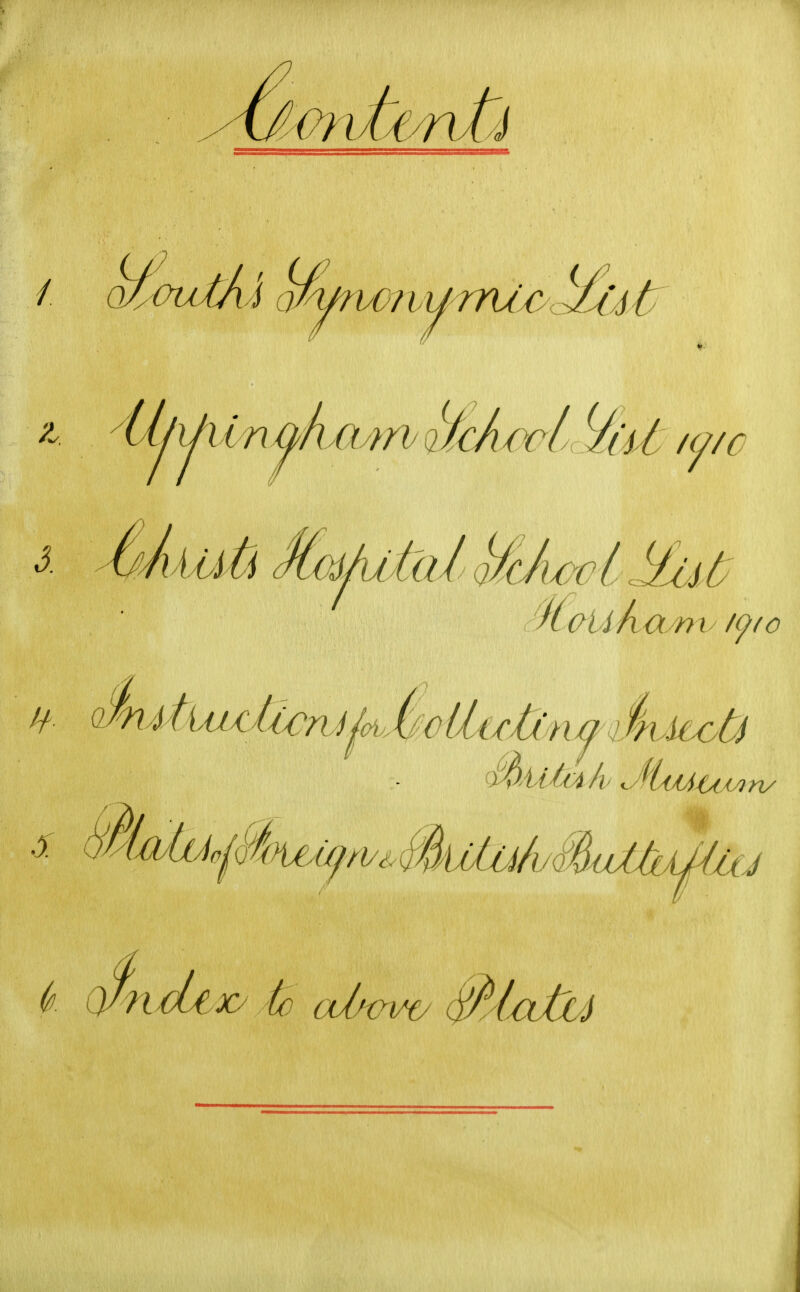 Contents
1. South's Synonymic List
2. Uppingham School List 1910
3. Christs Hospital School List
Horsham 1910
4. Instructions for Collecting Insects
British Museum
5. Plates of Foreign & British Butterflies
6. Index to above Plates